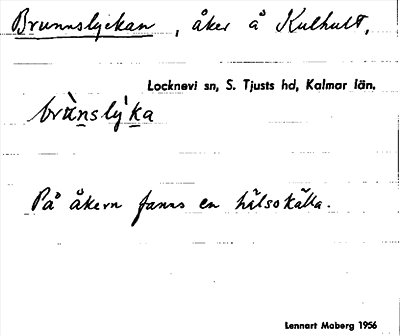 Brunnslyckan, åker å Kulhult,
Locknevi sn, S. Tjusts hd, Kalmar län.
brùnslýka
På åkern fanns en hälsokälla.
Lennart Moberg 1956